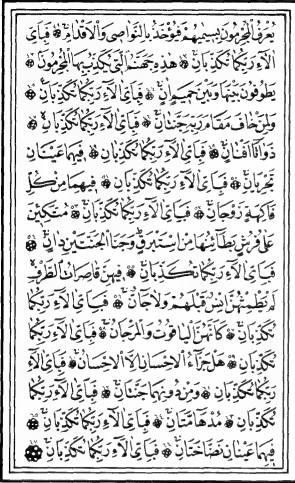 يُعْرَفُ الْمُجْرِمُونَ بِسِيمَاهُمْ فَيُؤْخَذُ بِالنَّوَاصِي وَالْأَقْدَامِ ۞ فَبِأَيِّ
آلَاءِ رَبِّكُمَا تُكَذِّبَانِ ۞ هَٰذِهِ جَهَنَّمُ الَّتِي يُكَذِّبُ بِهَا الْمُجْرِمُونَ ۞
يَطُوفُونَ بَيْنَهَا وَبَيْنَ حَمِيمٍ آنٍ ۞ فَبِأَيِّ آلَاءِ رَبِّكُمَا تُكَذِّبَانِ ۞
وَلِمَنْ خَافَ مَقَامَ رَبِّهِ جَنَّتَانِ ۞ فَبِأَيِّ آلَاءِ رَبِّكُمَا تُكَذِّبَانِ ۞
ذَوَاتَا أَفْنَانٍ ۞ فَبِأَيِّ آلَاءِ رَبِّكُمَا تُكَذِّبَانِ ۞ فِيهِمَا عَيْنَانِ
تَجْرِيَانِ ۞ فَبِأَيِّ آلَاءِ رَبِّكُمَا تُكَذِّبَانِ ۞ فِيهِمَا مِنْ كُلِّ
فَاكِهَةٍ زَوْجَانِ ۞ فَبِأَيِّ آلَاءِ رَبِّكُمَا تُكَذِّبَانِ ۞ مُتَّكِئِينَ
عَلَىٰ فُرُشٍ بَطَائِنُهَا مِنْ إِسْتَبْرَقٍ وَجَنَا الْجَنَّتَيْنِ دَانٍ ۞
فَبِأَيِّ آلَاءِ رَبِّكُمَا تُكَذِّبَانِ ۞ فِيهِنَّ قَاصِرَاتُ الطَّرْفِ
لَمْ يَطْمِثْهُنَّ إِنْسٌ قَبْلَهُمْ وَلَا جَانٌّ ۞ فَبِأَيِّ آلَاءِ رَبِّكُمَا
تُكَذِّبَانِ ۞ كَأَنَّهُنَّ الْيَاقُوتُ وَالْمَرْجَانُ ۞ فَبِأَيِّ آلَاءِ رَبِّكُمَا
تُكَذِّبَانِ ۞ هَلْ جَزَاءُ الْإِحْسَانِ إِلَّا الْإِحْسَانُ ۞ فَبِأَيِّ آلَاءِ
رَبِّكُمَا تُكَذِّبَانِ ۞ وَمِنْ دُونِهِمَا جَنَّتَانِ ۞ فَبِأَيِّ آلَاءِ رَبِّكُمَا
تُكَذِّبَانِ ۞ مُدْهَامَّتَانِ ۞ فَبِأَيِّ آلَاءِ رَبِّكُمَا تُكَذِّبَانِ ۞
فِيهِمَا عَيْنَانِ نَضَّاخَتَانِ ۞ فَبِأَيِّ آلَاءِ رَبِّكُمَا تُكَذِّبَانِ ۞